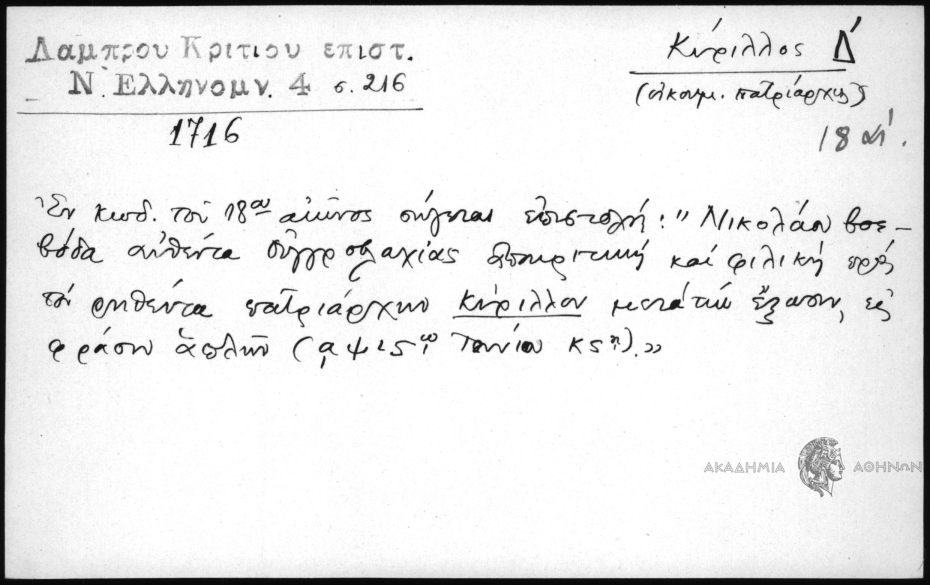 Λαμπρου Κριτιου επιστ.
Ν. Ελληνομν. 4 σ. 216
1716
Κύριλλος Δ΄
(οἰκουμ. πατριάρχης)
18 αἰ.
Ἐν κωδ. τοῦ 18ου αἰῶνος σώζεται ἐπιστολή: "Νικολάου βοε-
βόδα αὐθέντα οὐγγροβλαχίας ἀποκριτική καί φιλική πρός
τόν ρηθέντα πατριάρχην Κύριλλον μετά τήν ἔξωσιν, εἰς
φράσιν ἁπλῆν (͵αψιςῳ Ἰουνίου κςῃ)."
ΑΚΑΔΗΜΙΑ ΑΘΗΝΩΝ